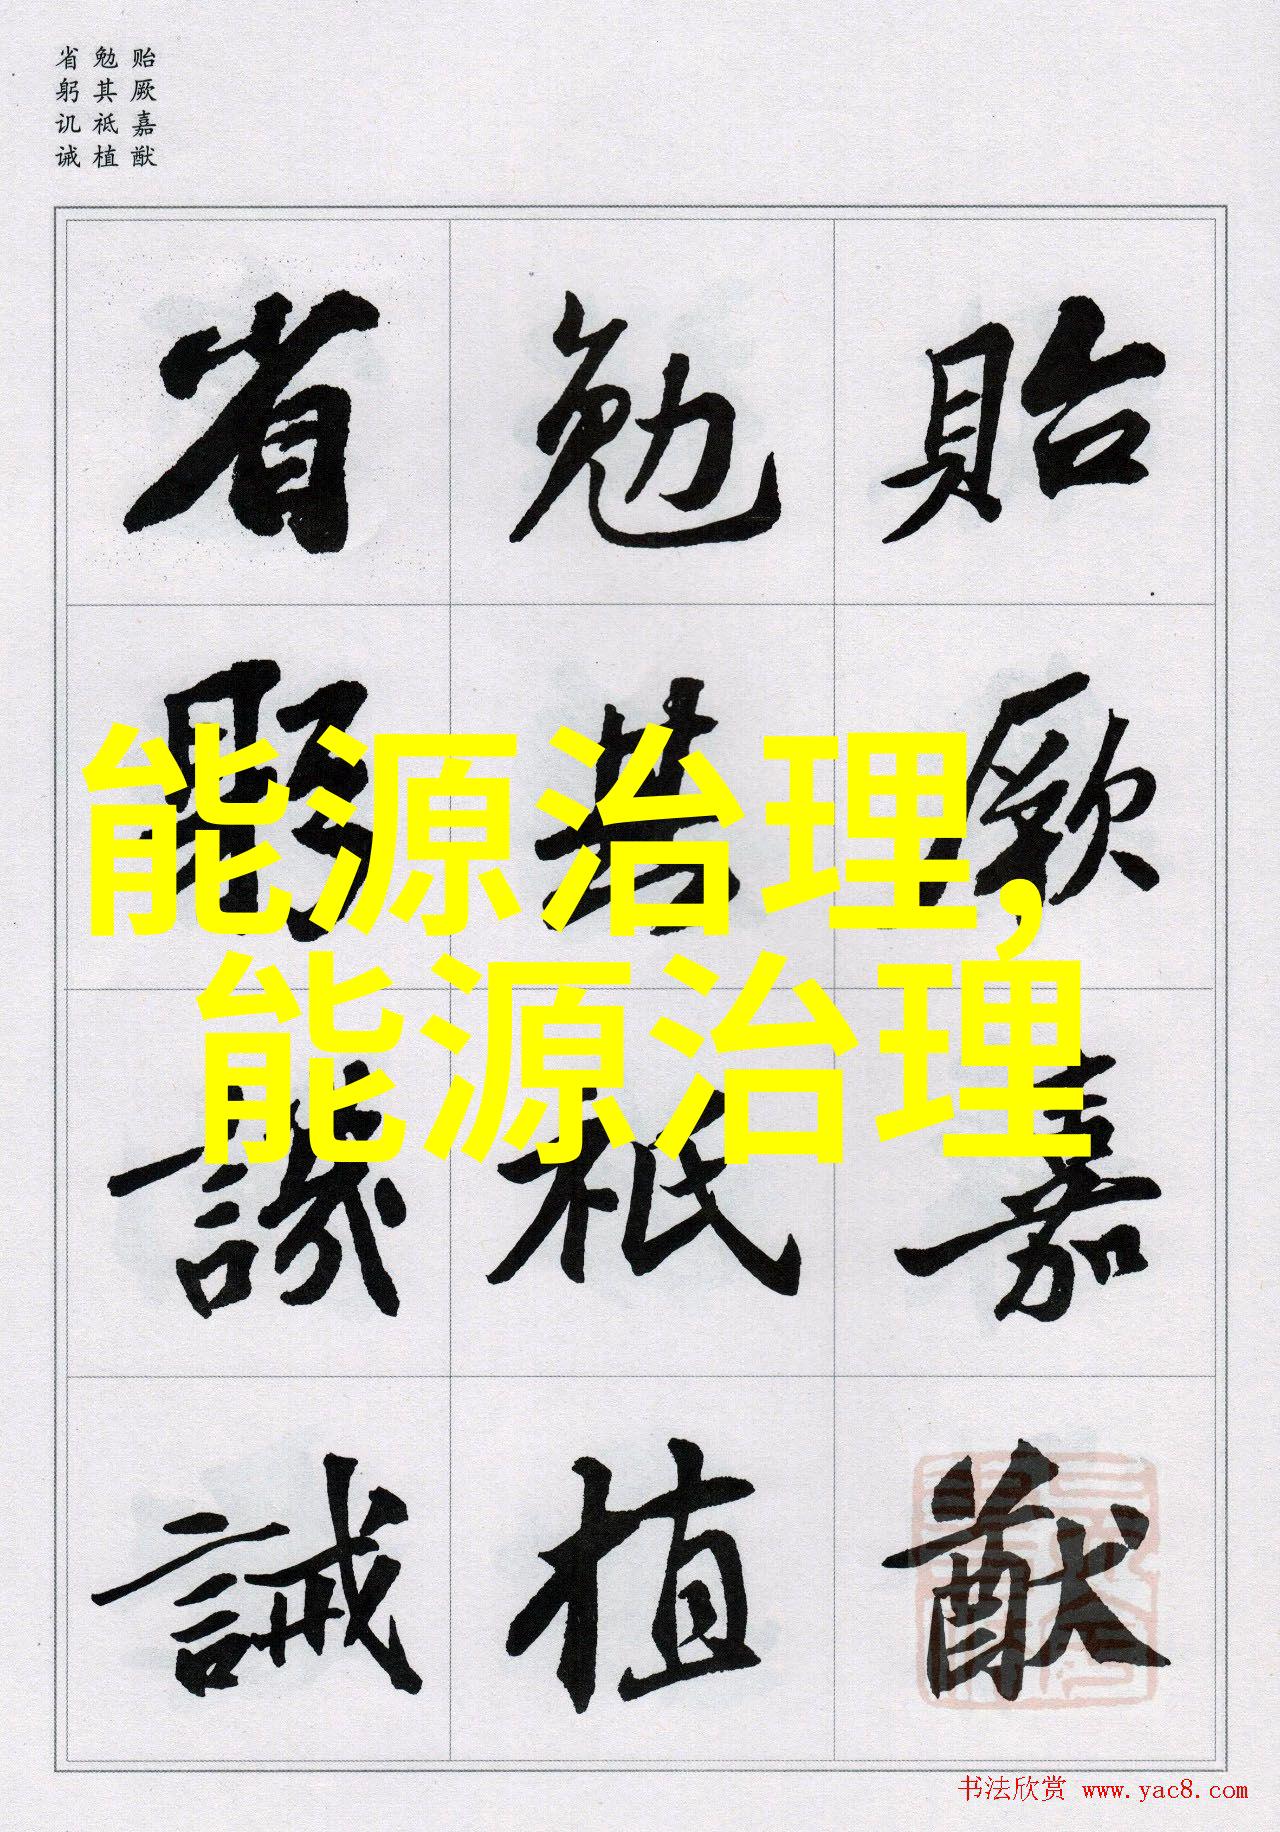 贻厥嘉猷
勉其祗植
省躬讥诫
貽厥嘉猷
勉其祗植
省躬譏誡
能源治理,
能源治理
书法欣赏 www.yac8.com